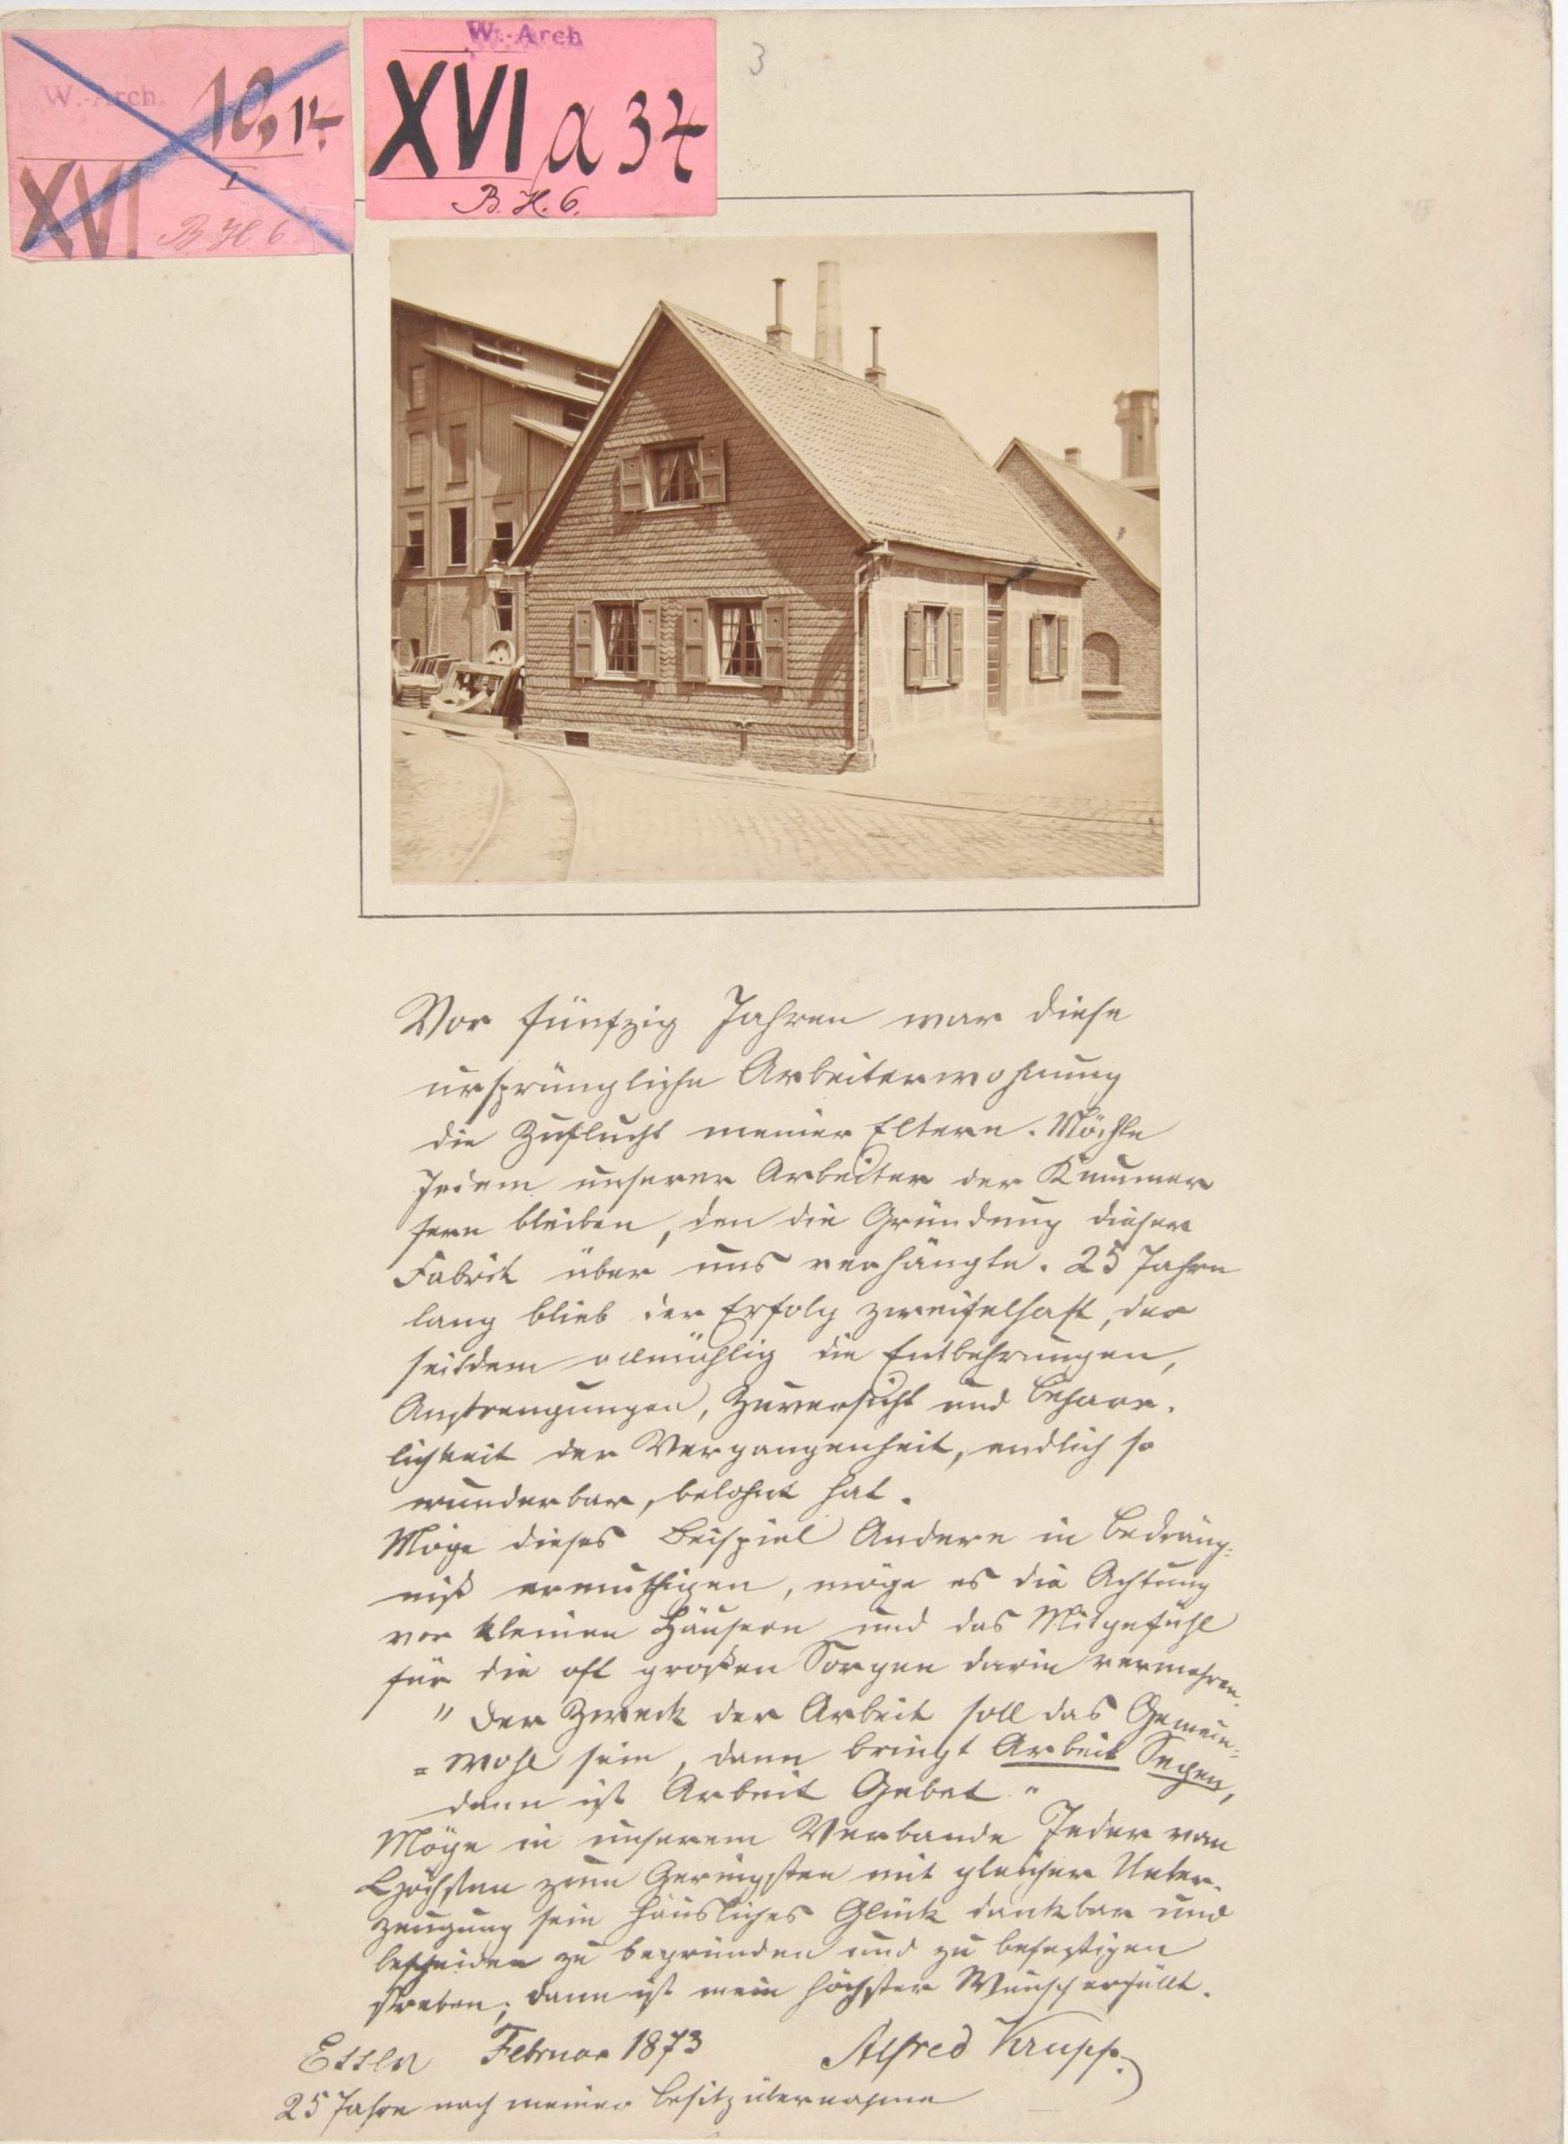 W.-Arch.
10,14
I
XVI
B. H. 6.
W.-Arch
XVI a 34
B. H. 6.
3
Vor fünfzig Jahren war diese
ursprüngliche Arbeiterwohnung
die Zuflucht meiner Eltern. Möchte
Jedem unserer Arbeiter der Kummer
fern bleiben, den die Gründung dieser
Fabrik über uns verhängte. 25 Jahre
lang blieb der Erfolg zweifelhaft, der
seitdem allmählig die Entbehrungen,
Anstrengungen, Zuversicht und Beharr-
lichkeit der Vergangenheit, endlich so
wunderbar, belohnt hat.
Möge dieses Beispiel Andere in Bedräng-
niß ermuthigen, möge es die Achtung
vor kleinen Häusern und das Mitgefühl
für die oft großen Sorgen darin vermehren.
"Der Zweck der Arbeit soll das Gemein-
=wohl sein, dann bringt Arbeit Segen,
dann ist Arbeit Gebet."
Möge in unserem Verbande Jeder vom
Höchsten zum Geringsten mit gleicher Ueber-
zeugung sein häusliches Glück dankbar und
bescheiden zu begründen und zu befestigen
streben; dann ist mein höchster Wunsch erfüllt.
Essen Februar 1873 Alfred Krupp.
25 Jahre nach meiner Besitzübernahme